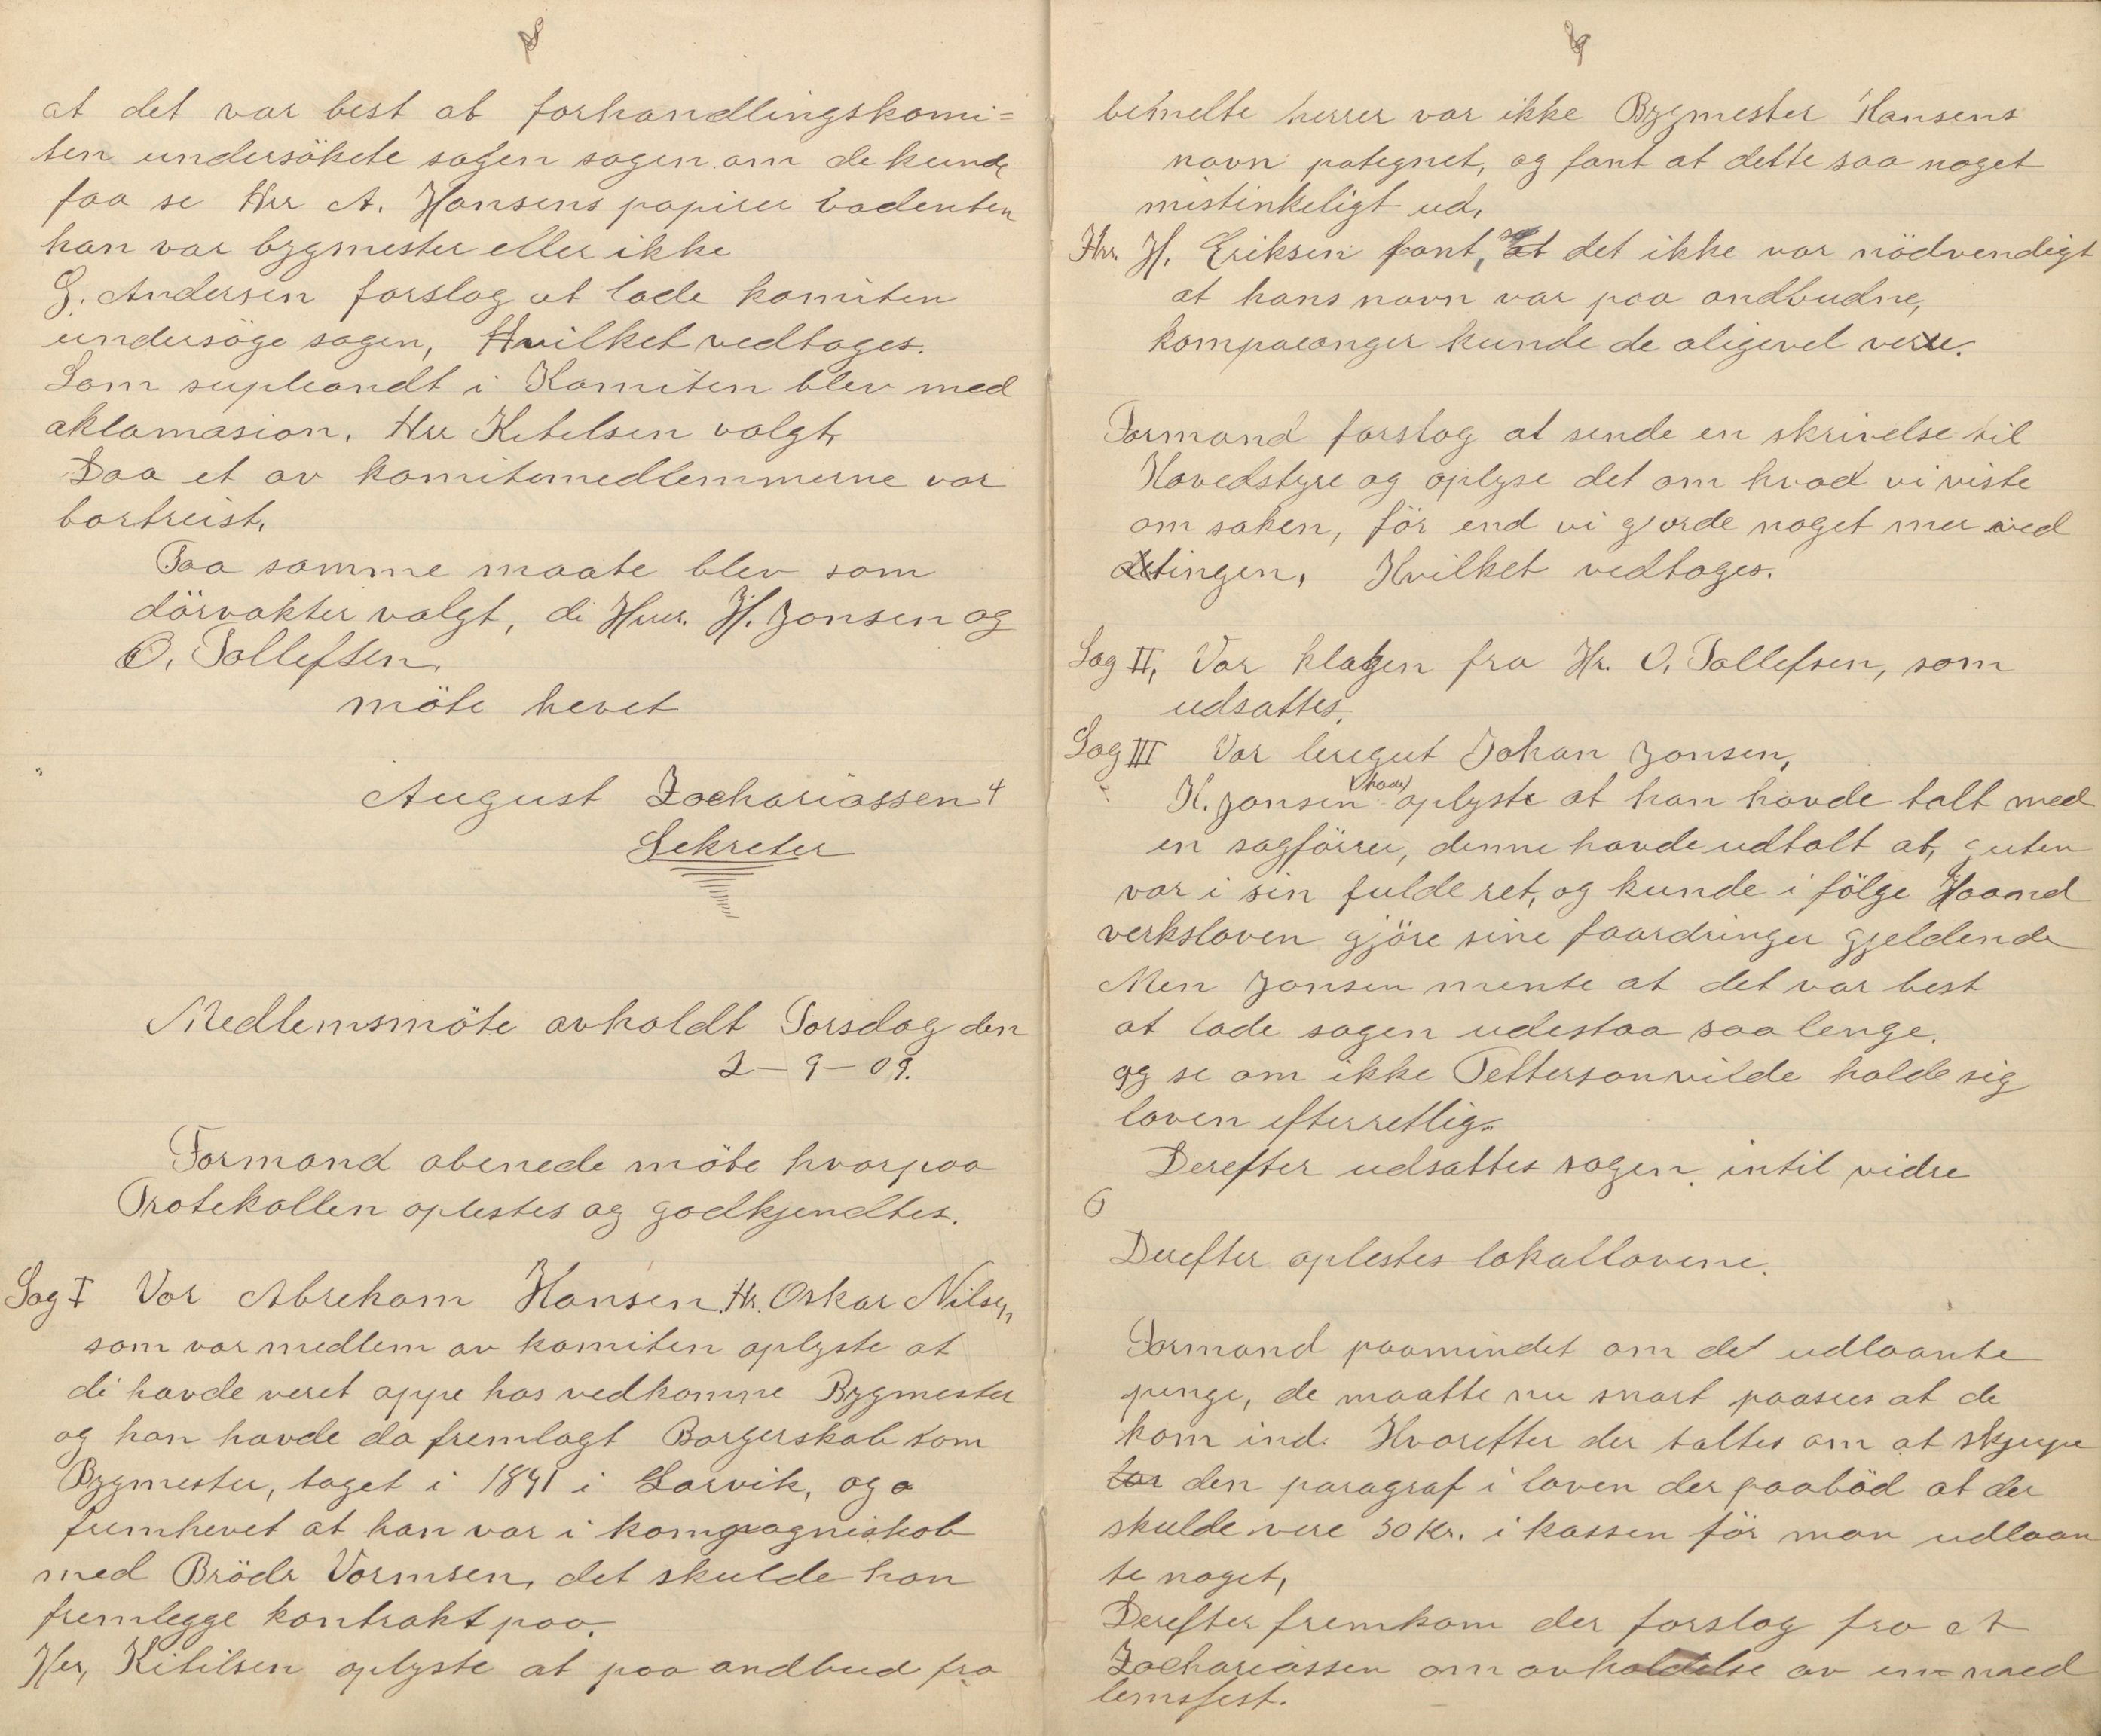 8
at det var best at forhandlingskomi=
ten undersökete sagen sagen om de kunde
faa se Hrr A. Hansens papirer vadenten
han var bygmester eller ikke
G. Andersen forslog at lade komiten
undersöge sagen, Hvilket vedtoges.
Som supleandt i Komiten blev med
aklamasion. Hrr Ketelsen valgt,
Daa et av komitemedlemmerne var
bortreist.
Paa samme maate blev som
dörvakter valgt, di Hrrer. H. Jonsen og
O. Tollefsen.
möte hevet
August Zachariassen
Sekreter
Medlemsmöte avholdt Torsdag den
2-9-09.
Formand abenede möte hvorpaa
Protekollen oplestes og godkjendtes.
Sag I Var Abreham Hansen. Hr. Oskar Nilsen
som var medlem av komiten oplyste at
di havde veret oppe hos vedkomne Bygmester
og han havde da fremlagt Borgerskab som
Bygmester, taget i 1891 i Larvik, og
fremhevet at han var i kompagniskab
med Brödr Vormsen, det skulde han
fremlegge kontrakt paa.
Her, Kitilsen oplyste at paa andbud fra
9
bemelte herrer var ikke Bygmester Hansens
navn pategnet, og fant at dette saa noget
mistinkeligt ud.
Hr. H. Eriksen fant, at det ikke var nödvendigt
at hans navn var paa andbudne,
kompaeonger kunde de aligevel vere.
Formand forslog at sende en skrivelse til
Hovedstyre og oplyse det om hvad vi viste
om saken, för end vi gjorde noget mer ved
tingen. Hvilket vedtoges.
Sag II, Var klagen fra Hr. O. Tollefsen, som
udsattes.
Sag III Var leregut Johan Jonsen,
H. Jonsen (hade) oplyste at han havde talt med
en sagförrer, denne havde udtalt at, guten
var i sin fulde ret, og kunde i fölge Haand
verksloven gjöre sine faardringer gjeldende
Men Jonsen mente at det var best
at lade sagen udestaa saa lenge.
og se om ikke Petterson vilde holde sig
loven efterretlig.
Derefter udsattes sagen. intil vidre
Derefter oplestes lokallovene.
Formand paamindet om det udlaante
penge, de maatte nu snart paasees at de
kom ind. Hvorefter der taltes om at skjerpe
den paragraf i loven der paaböd at der
skulde vere 30 Kr. i kassen för man udlaan
te noget,
Derefter fremkom der forslag fra A
Zachariassen om avholdelse av en med
lemsfest.